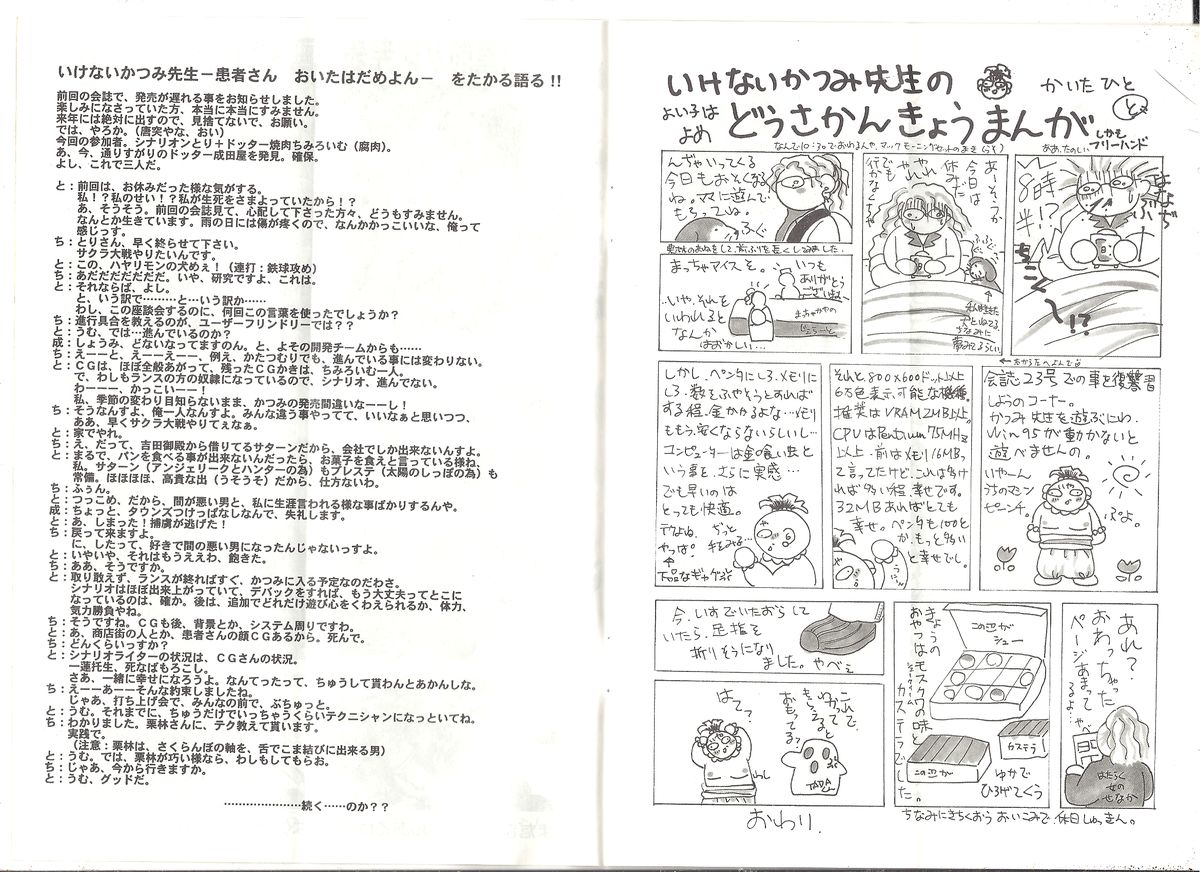 いけないかつみ先生－患者さん　おいたはだめよん－　をたかる語る!!
前回の会誌で、発売が遅れる事をお知らせしました。
楽しみになさっていた方、本当に本当にすみません。
来年には絶対に出すので、見捨てないで、お願い。
では、やろか。（唐突やな、おい）
今回の参加者。シナリオンとり＋ドッター焼肉ちみろいむ（腐肉）。
あ、今、通りすがりのドッター成田屋を発見。確保。
よし、これで三人だ。
と：前回は、お休みだった様な気がする。
私！？私のせい！？私が生死をさまよっていたから！？
あ、そうそう。前回の会誌見て、心配して下さった方々、どうもすみません。
なんとか生きています。雨の日には傷が疼くので、なんかかっこいいな、俺って
感じっす。
ち：とりさん、早く終らせて下さい。
サクラ大戦やりたいんです。
と：この、ハヤリモンの犬めぇ！（連打：鉄球攻め）
ち：あだだだだだだだ。いや、研究ですよ、これは。
と：それならば、よし。
と、いう訳で………と…いう訳か……
わし、この座談会するのに、何回この言葉を使ったでしょうか？
ち：進行具合を教えるのが、ユーザーフリンドリーでは？？
と：うむ、では…進んでいるのか？
成：しょうみ、どないなってますのん。と、よその開発チームからも……
ち：えーーと、えーーえーー、例え、かたつむりでも、進んでいる事には変わりない。
と：ＣＧは、ほぼ全般あがって、残ったＣＧかきは、ちみろいむ一人。
で、わしもランスの方の奴隷になっているので、シナリオ、進んでない。
わーーー、かっこいーー！
私、季節の変わり目知らないまま、かつみの発売間違いなーーし！
ち：そうなんすよ、俺一人なんすよ。みんな違う事やってて、いいなぁと思いつつ、
ああ、早くサクラ大戦やりてぇなぁ。
と：家でやれ。
ち：え、だって、吉田御殿から借りてるサターンだから、会社でしか出来ないんすよ。
と：まるで、パンを食べる事が出来ないんだったら、お菓子を食えと言っている様ね、
私。サターン（アンジェリークとハンターの為）もプレステ（太陽のしっぽの為）も
常備。ほほほほ、高貴な出（うそうそ）だから、仕方ないわ。
ち：ふぅん。
と：つっこめ、だから、間が悪い男と、私に生涯言われる様な事ばかりするんや。
成：ちょっと、タウンズつけっぱなしなんで、失礼します。
と：あ、しまった！捕虜が逃げた！
ち：戻って来ますよ。
に、したって、好きで間の悪い男になったんじゃないっすよ。
と：いやいや、それはもうええわ、飽きた。
ち：ああ、そうですか。
と：取り敢えず、ランスが終ればすぐ、かつみに入る予定なのだわさ。
シナリオはほぼ出来上がっていて、デバックをすれば、もう大丈夫ってとこに
なっているのは、確か。後は、追加でどれだけ遊び心をくわえられるか、体力、
気力勝負やね。
ち：そうですね。ＣＧも後、背景とか、システム周りですわ。
と：あ、商店街の人とか、患者さんの顔ＣＧあるから。死んで。
ち：どんくらいっすか？
と：シナリオライターの状況は、ＣＧさんの状況。
一蓮托生、死なばもろこし。
さあ、一緒に幸せになろうよ。なんてったって、ちゅうして貰わんとあかんしな。
ち：えーーあーーそんな約束しましたね。
じゃあ、打ち上げ会で、みんなの前で、ぶちゅっと。
と：うむ。それまでに、ちゅうだけでいっちゃうくらいテクニシャンになっといてね。
ち：わかりました。栗林さんに、テク教えて貰います。
実践で。
（注意：栗林は、さくらんぼの軸を、舌でこま結びに出来る男）
と：うむ。では、栗林が巧い様なら、わしもしてもらお。
ち：じゃあ、今から行きますか。
と：うむ、グッドだ。
…………………続く……のか？？
いけないかつみ先生の
かいたひと
と
よい子は
よめ
どうさかんきょうまんが
しかも
フリーハンド
ああ、たのしい
8時
半!?
ちこく
〜!?
あーそっか
今日は
休みだ
やれやれ
でも
行かなくちゃ
んぢゃいってくる
今日もおそくなる
ね。ママに遊んで
もらってね。
ふぐ
まっちゃアイスを。
いつも
ありがとう
ございますー
いや、それを
いわれると
なんか
はずかしい…
会誌23号での事を復習
しようのコーナー。
かつみ先生を遊ぶにわ、
Win95が動かないと
遊べませんの。
いやーん
うちのマシン
ぷよ。
それと、800×600ドット以上
6万色表示可能な機種。
推奨はVRAM2MB以上。
CPUはPentium75MHz
以上。前はメモリ16MB。
て言ってたけど、これは多け
れば多い程、幸せです。
32MBあればとても
幸せ。ペンタも100と
か、もっと多い
と幸せでし。
しかし、ペンタにしろ、メモリに
しろ、数をふやそうとすれば
する程、金かかるよな…メモリ
ももう、安くならないらしいし…
コンピューターは金の食い虫と
いう事を、さらに実感…
でも早いのは
とっても快適。
やっぱ。
下品なギャグだぞ
あれ？
おわっちゃった
ページあまって
るよ…
やべ
はたらく
女の
せなか
きょうの
おやつはモスクワの味と
カステラでした。
この辺が
シュー
カステラ
この辺が
ゆかで
ひろげてくう
今、いすでいたおらして
いたら、足指を
折りそうになり
ました。やべぇ
これで、
おわってる?
TADA
はて？
わし
おわり.
ちなみにきちくおう おいこみで、休日しゅっきん。